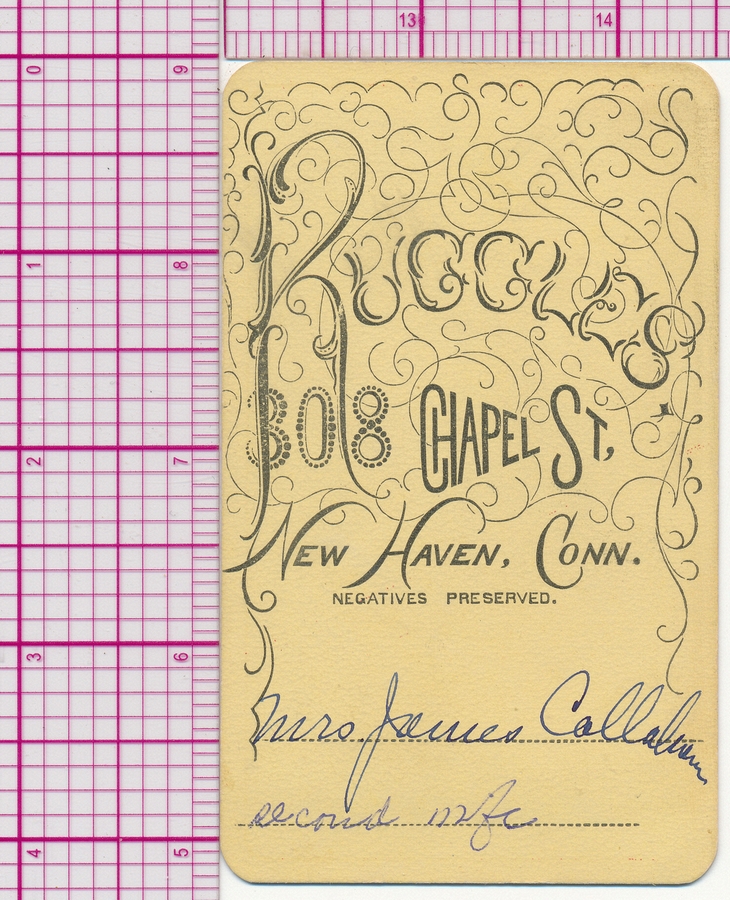 13 14
0 9
1 8
2 7
3 6
4 5
Ruggles
808 Chapel St,
New Haven, Conn.
NEGATIVES PRESERVED.
Mrs. James Callahan
second wife